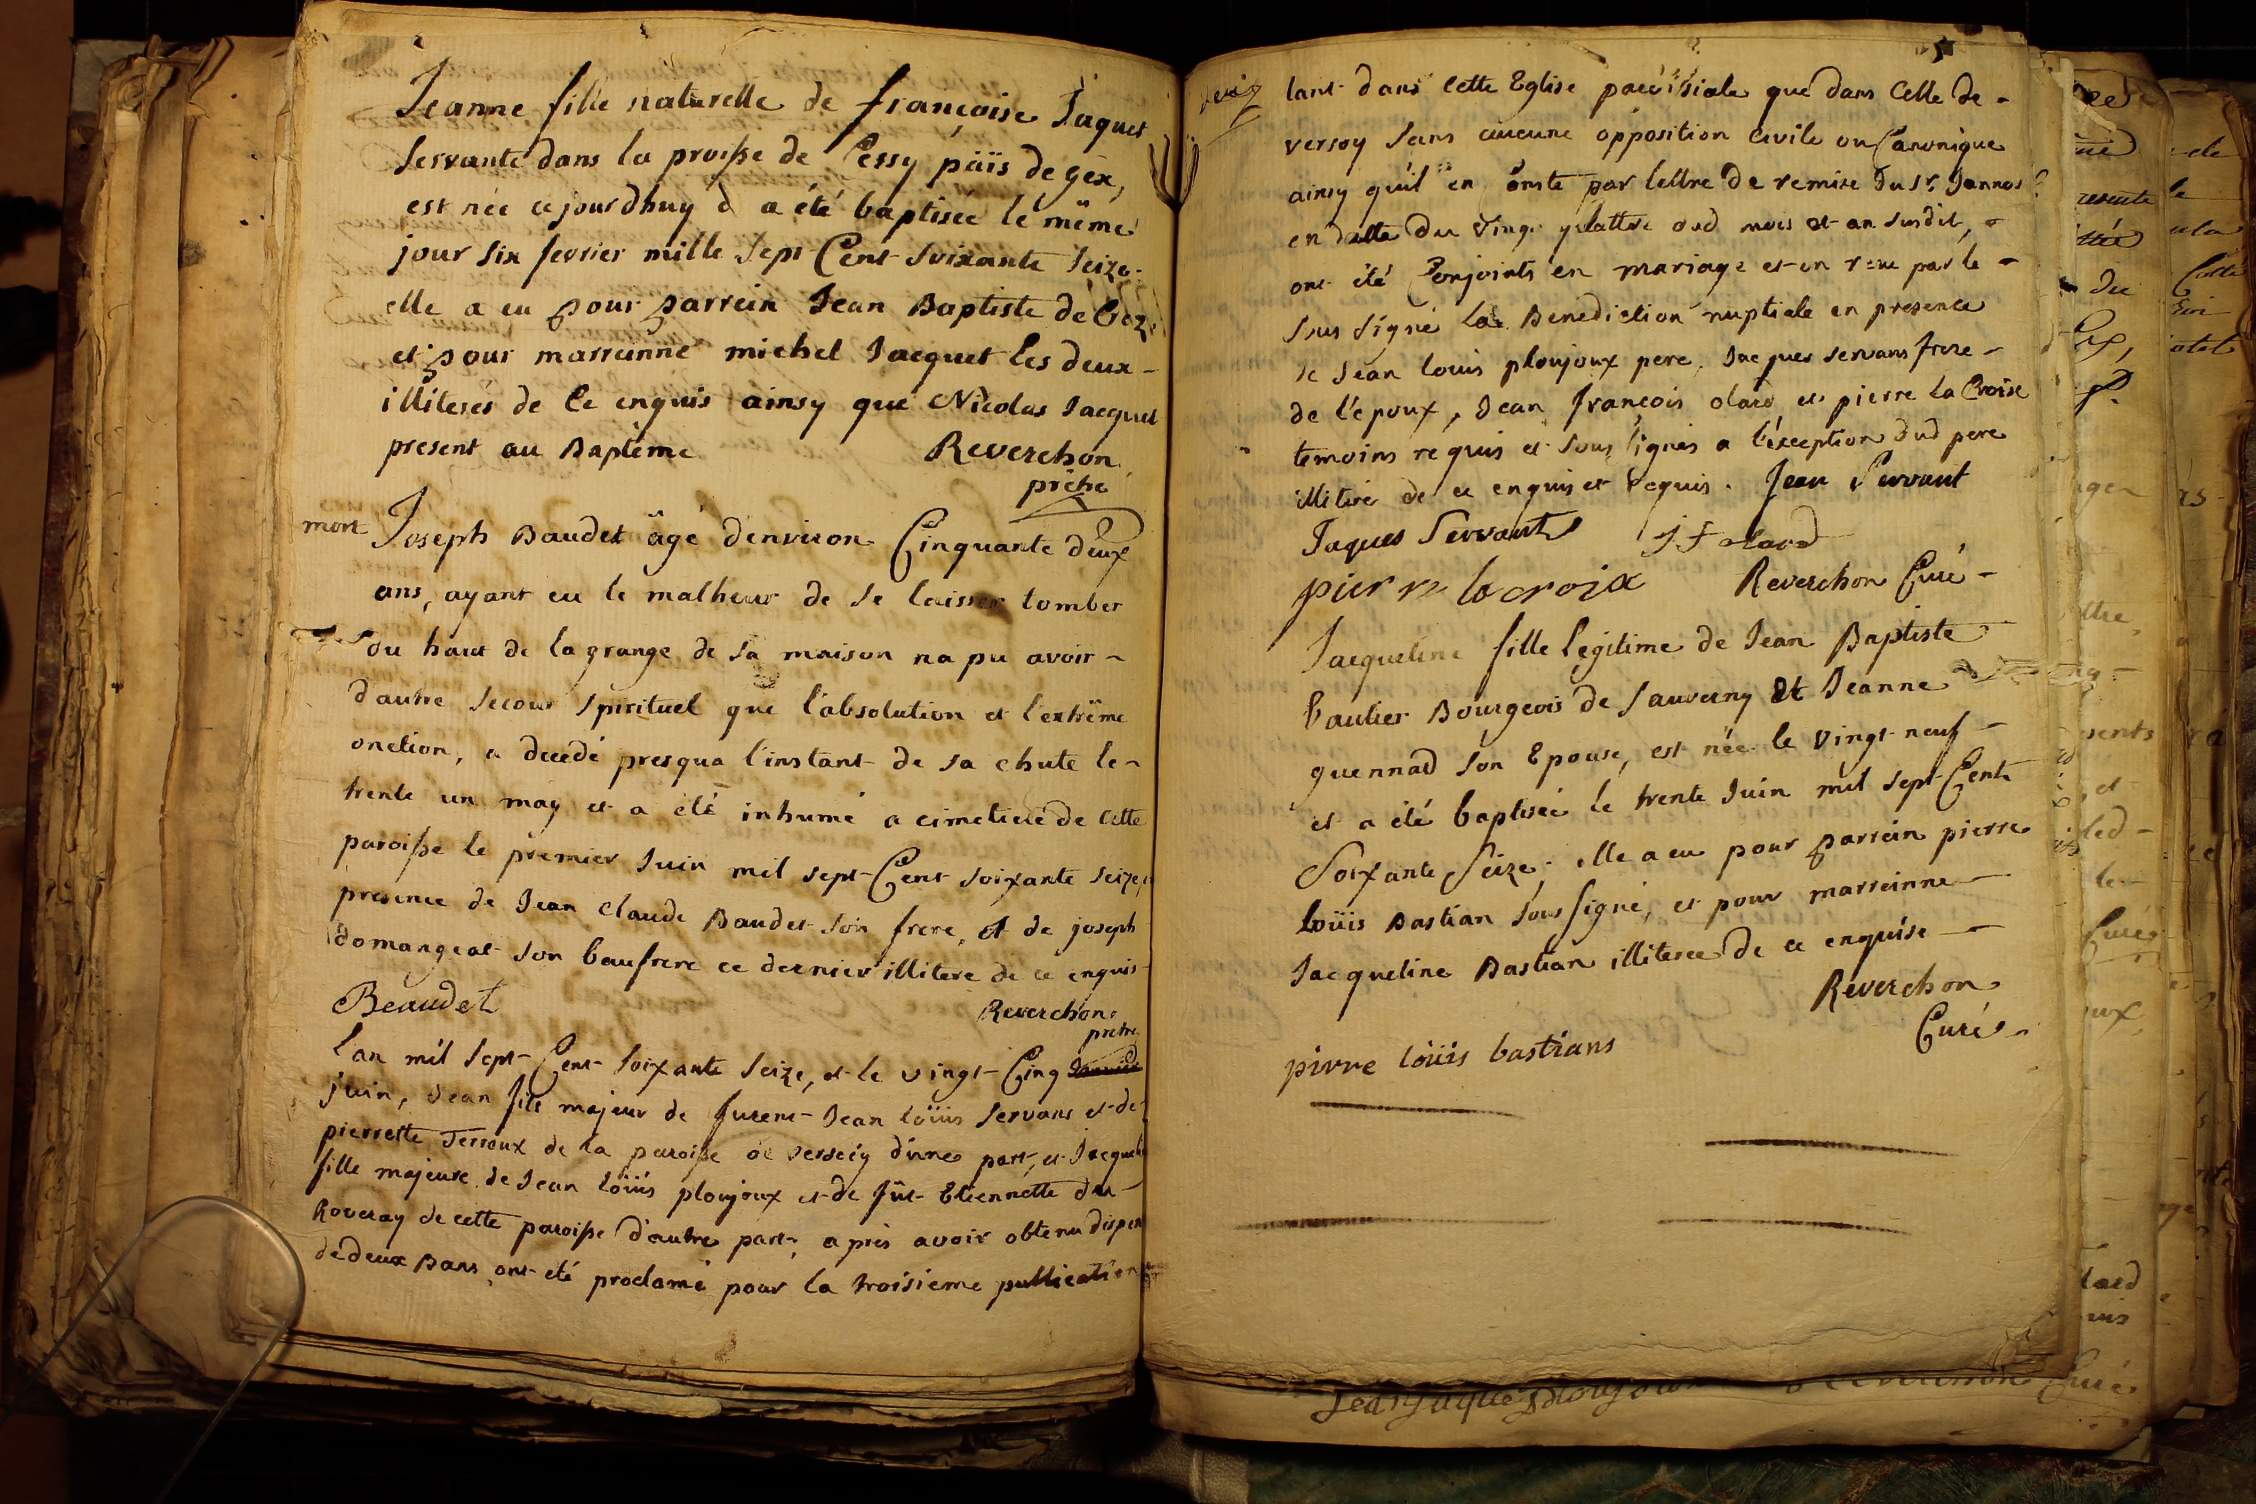 Jeanne fille naturelle de françoise Jaquet
servante dans la proisse de Cessy païs de gex,
est née ce jourdhuy & a été baptisée le même
jour six fevrier mille sept Cent soixante seize.
elle a eu pour parrein Jean Baptiste de
et pour marrenne michel Jacquet les deux
illiterés de ce enquis ainsy que Nicolas Jacquet
present au Baptême Reverchon
prêtre
mort Joseph Baudet âgé denviron Cinquante deux
ans, ayant eu le malheur de se laisser tomber
du haut de la grange de sa maison na pu avoir
dautre secour spirituel que l'absolution et l'extrême
onction, a decedé presqua l'instant de sa chute le
trente un may et a été inhumé a cimetiere de cette
paroisse le premier Juin mil sept Cent soixante seize,
presence de Jean claude Baudet son frere, et de joseph
domangeat son baufrere ce dernier illitere de ce enquis
Beaudet Reverchon
pretre
Lan mil sept Cent soixante seize, et le vingt Cinq
juin, Jean fils majeur de furent Jean loüis servans et de
pierrette Terroux de la paroisse de versoiy dune part, et
fille majeure de Jean loüis ploujoux et de fût Etiennette du
Roveray de cette paroisse d'autre part, apres avoir obtenu
de deux Bans ont eté proclamé pour la troisieme publication
tant dans cette Eglise paroissiale que dans Celle de
versoy sans aucune opposition civile ou Canonique
ainsy qu'il en Conste par lettre de remise du sr. Jannos
en datte du vingt quattre dud mois et an susdit,
ont été Conjoints en mariage et on recu par le
sous signé la Benediction nuptiale en presence
de Jean louis ploujoux pere, Jacques servans frere
de l'époux, Jean françois olard et pierre la Croix
temoins requis et sous signés a l'éxception dud pere
illiteré de ce enquis et requis. Jean Servant
Jaques Servant J f olard
pierre lacroix Reverchon Curé
Jacqueline fille legitime de Jean Baptiste
bautier Bourgeois de Sauverny et Jeanne
quennad son Epouse, est née le vingt neuf
et a été baptisée le trente Juin mil sept Cent
Soixante Seize; elle a eu pour parrein pierre
loüis Bastian sous signé, et pour marreinne
Jacqueline Bastian illiteree de ce enquise
Reverchon
Curé
pirre loüis bastians